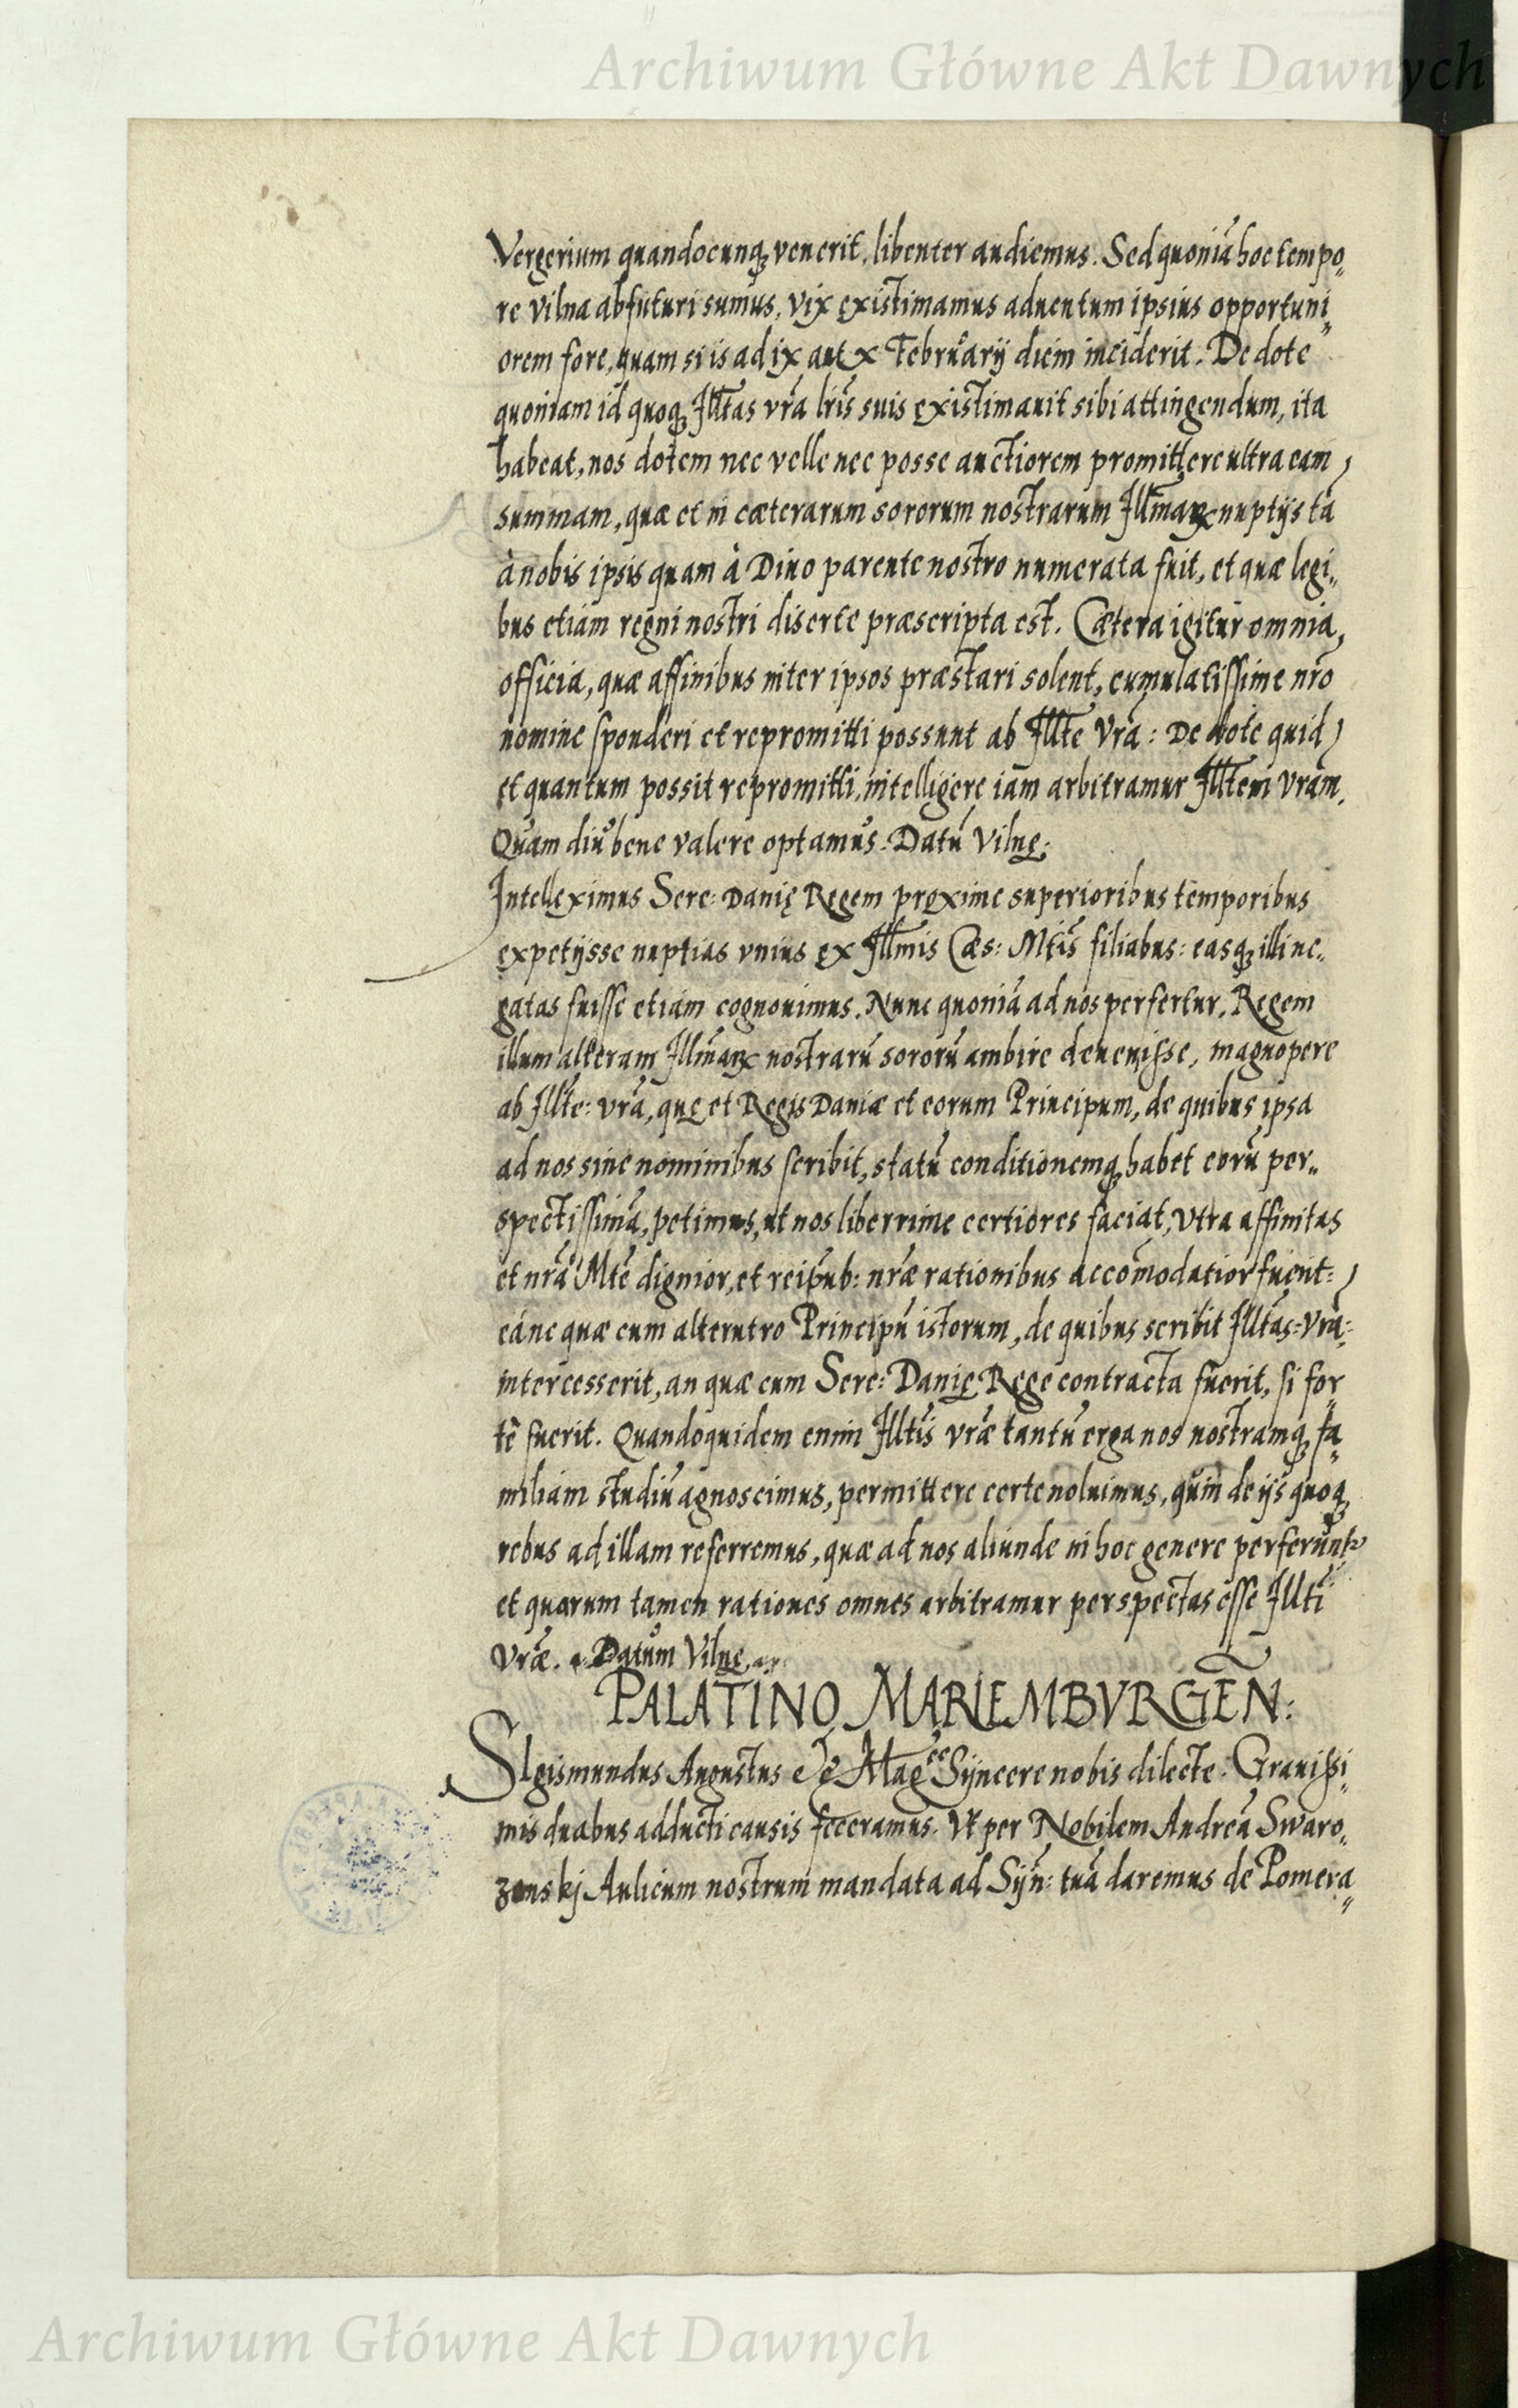 Archiwum Główne Akt Dawnych
Vergerium quandocunq; venerit, libenter audiemus. Sed quoniã hoc tempo„
re Vilna abfuturi sumus, vix existimamus aduentum ipsius opportuni„
orem fore, quam si is ad ix aut x Februarÿ diem inciderit. De dote
quoniam id quoq; Illtas vrã lris suis existimauit sibi attingendum, ita
habeat, nos dotem nec velle nec posse auctiorem promittere ultra eam
summam, quæ et in cæterarum sororum nostrarum Illmarꝝ nuptÿs tã
à nobis ipsis quam à Diuo parente nostro numerata fuit, et quæ legi„
bus etiam regni nostri diserte præscripta est. Cætera igitur omnia,
officia, quæ affinibus inter ipsos præstari solent, cumulatissime nrõ
nomine sponderi et repromitti possunt ab Illte Vrã: De dote quid
et quantum possit repromitti, intelligere iam arbitramur Illtem Vram.
Quam diu bene valere optamus. Datũ Vilnę.
Intelleximus Sere: Danię Regem proxime superioribus temporibus
expetÿsse nuptias vnius ex Illmis Cæs: Mtis filiabus: easq; illi ne„
gatas fuisse etiam cognouimus. Nunc quoniã ad nos perfertur, Regem
illum alteram Illmarꝝ nostrarũ sororũ ambire deuenisse, magnopere
ab Illte: vrã, quę et Regis Daniæ et eorum Principum, de quibus ipsa
ad nos sine nominibus scribit, statũ conditionemq; habet eorũ per„
spectissimã, petimus, ut nos liberrime certiores faciat, vtra affinitas
et nrã Mte dignior, et reipub: nræ rationibus accõmodatior fuerit:
eáne quæ cum alterutro Principũ istorum, de quibus scribit Illtas: Vrã:
intercesserit, an quæ cum Sere: Danię Rege contracta fuerit, si for„
tè fuerit. Quandoquidem enim Illtis vræ tantũ erga nos nostramq; fa„
miliam studiũ agnoscimus, permittere certe noluimus, quin de ijs quoq;
rebus ad illam referremus, quæ ad nos aliunde in hoc genere perferunt~
et quarum tamen rationes omnes arbitramur perspectas esse Illti
Vræ. Datum Vilnę
PALATINO MARIEMBVRGEÑ:
SIgismundus Augustus &c Magce Sÿncere nobis dilecte. Grauissi„
mis duabus adducti causis feceramus. Vt per Nobilem Andreã Swaro„
zenskj Aulicum nostrum mandata ad Sÿn: tuã daremus de Pomera„
Archiwum Główne Akt Dawnych